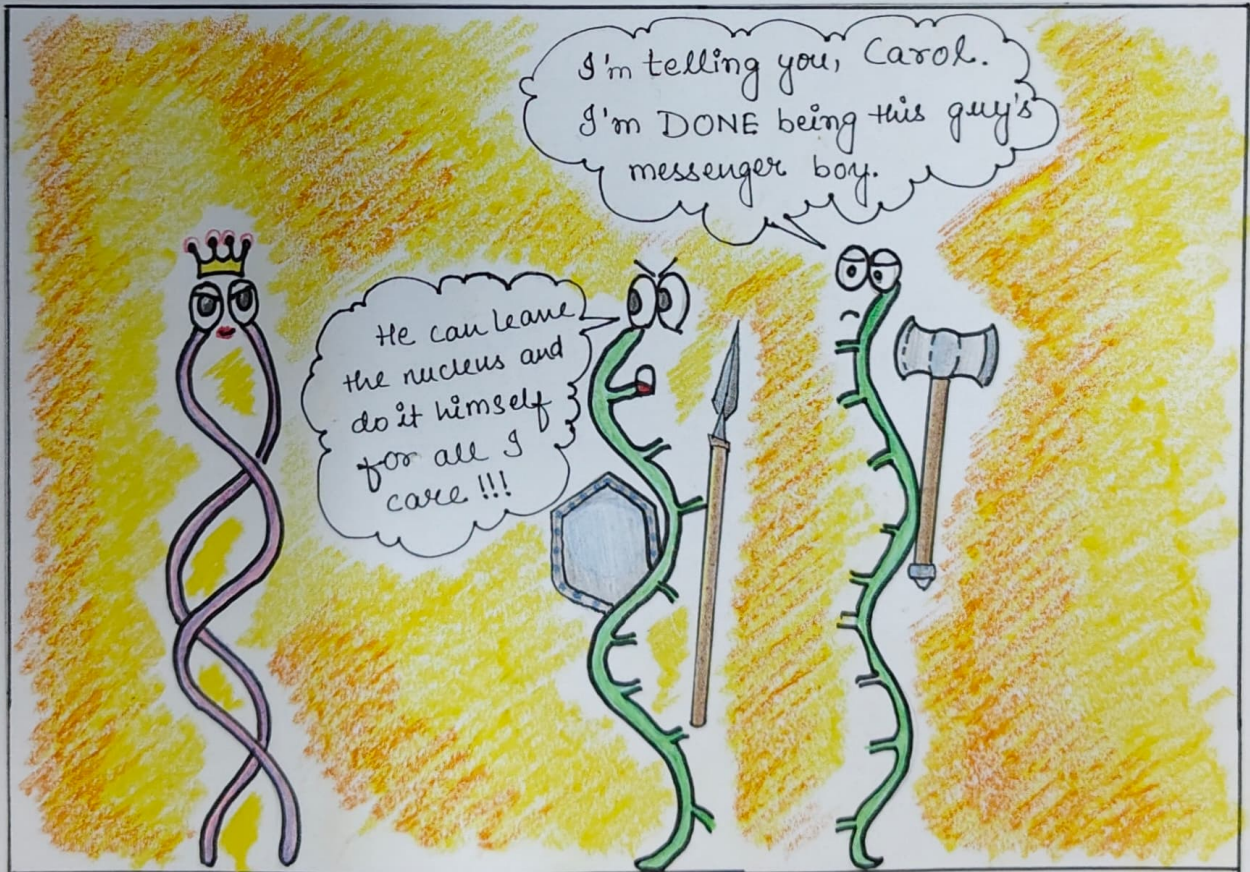 I'm telling you, Carol.
I'm DONE being this guy's
messenger boy.
He can leave
the nucleus and
do it himself
for all I
care !!!